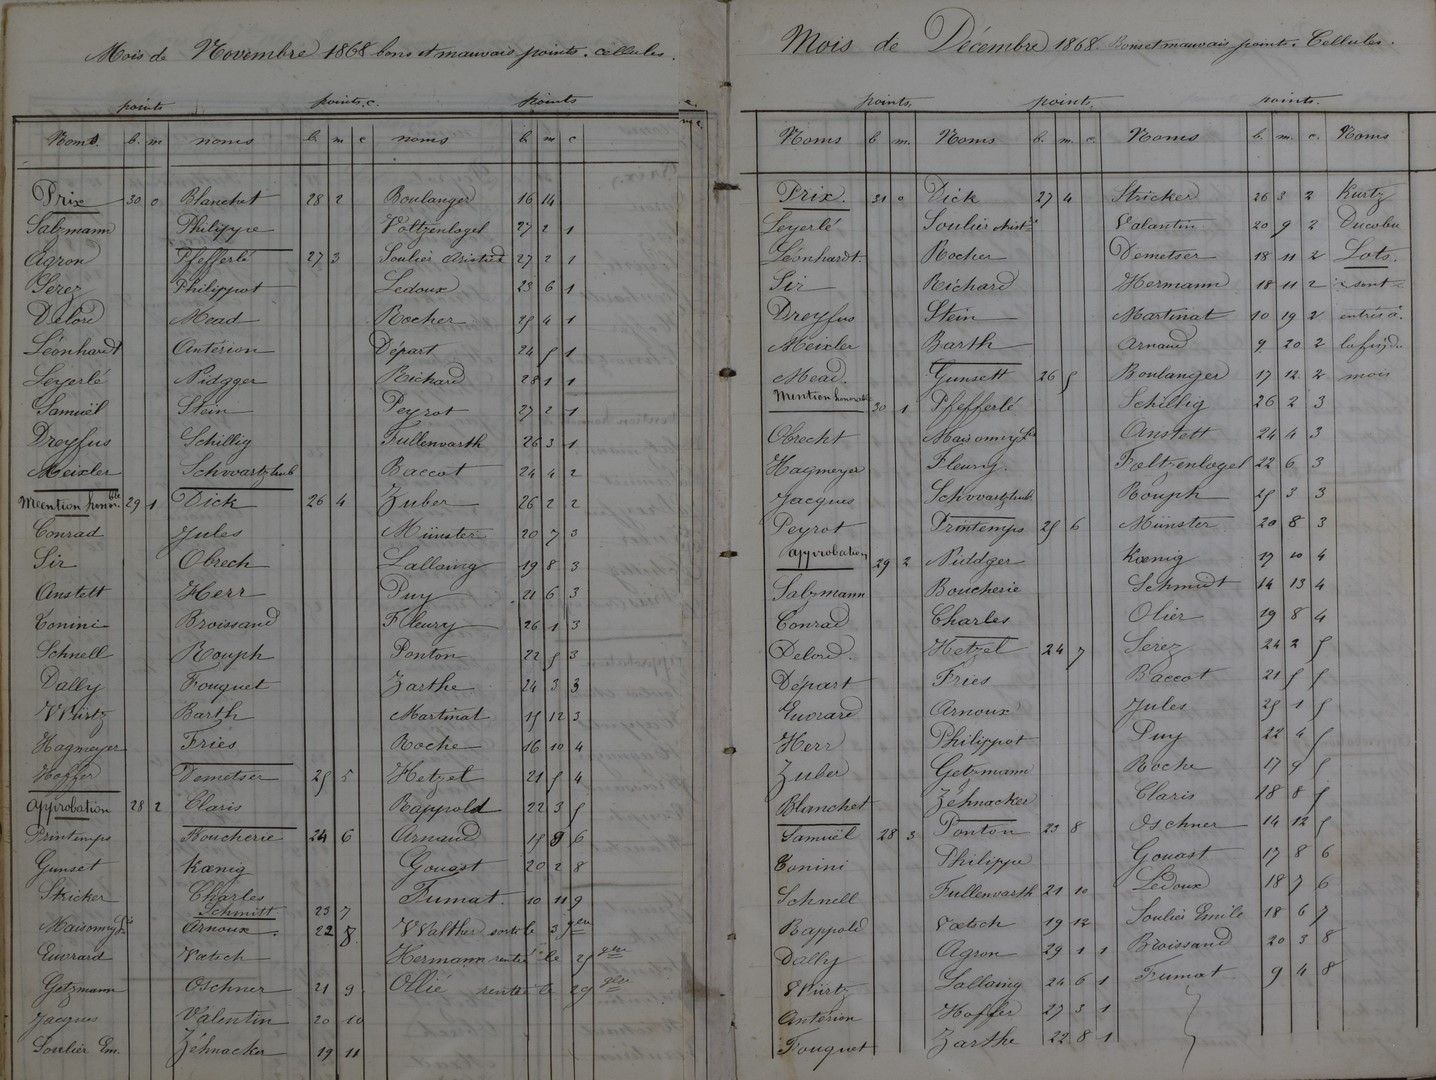 Mois de Novembre 1868 bons et mauvais points. cellules.
points points. c. points
Noms. b. m noms b. m c noms b m c
Prix 30 0 Blanchet 28 2 Boulanger 16 14
Salzmann Philippe Voltzenlogel 27 2 1
Agron Pfefferlé 27 3 Soulier Aristide 27 2 1
Serez Philippot Ledoux 23 6 1
Delord Mead Rocher 25 4 1
Léonhardt Antérion Départ 24 5 1
Leyerlé Nidgger Richard 28 1 1
Samuël Stein Peyrot 27 2 1
Dreyfus Schillig Fullenvarth 26 3 1
Meixler Schwartzlub Baccot 24 4 2
Mention honble 29 1 Dick 26 4 Zuber 26 2 2
Conrad Jules Münster 20 7 3
Sir Obrech Lallaing 19 8 3
Anstett Herr Puy 21 6 3
Tonini Broissand Fleury 26 1 3
Schnell Rouph Ponton 22 5 3
Dally Fouquet Zarthe 24 3 3
Würtz Barth Martinat 15 12 3
Hagmeyer Fries Roche 16 10 4
Hoffer Demetser 25 5 Hetzel 21 5 4
Approbation 28 2 Claris Rappold 22 3 5
Printemps Boucherie 24 6 Arnaud 15 9 6
Gunset Kœnig Gouast 20 2 8
Stricker Charles Fumat. 10 11 9
Schmitt 23 7
Maisonny Arnoux. 22 8 Walther sorti le 3 9bre
Euvrard Vœtsch Hermann rentré le 25 9bre
Getzmann Oschner 21 9 Ollié rentré le 29 9bre
Jacques Valentin 20 10
Soulier Em. Zéhnacker 19 11
Mois de Décembre 1868. Bons et mauvais points. Cellules.
points. points. points.
Noms b m. Noms b. m. c. Noms b. m. c. Noms
Prix. 31 0 Dick 27 4 Stricker 26 3 2 Kurtz
Leyerlé Soulier Arist. Valantin 20 9 2 Ducobu
Léonhardt Rocher Demetser 18 11 2 Lots.
Sir Richard Hermann 18 11 2 sont
Dreyfus Stein Martinat 10 19 2 entrés à
Meixler Barth Arnaud 9 20 2 la fin du
Mead. Gunsett 26 5 Boulanger 17 12 2 mois
Mention honorable 30 1 Pfefferlé Schillig 26 2 3
Obrecht Maisonny Anstett 24 4 3
Hagmeyer Fleury. Foltzenlogel 22 6 3
Jacques Schwartzlub Rouph 25 3 3
Peyrot Printemps 25 6 Münster 20 8 3
Approbation 29 2 Niddger Kœnig 17 10 4
Salzmann Boucherie Schmidt 14 13 4
Conrad Charles Olier 19 8 4
Delord. Hetzel 24 7 Serez 24 2 5
Départ Fries Baccot 21 5 5
Euvrard Arnoux Jules 25 1 5
Herr Philippot Puy 22 4 5
Zuber Getzmann Roche 17 9 5
Blanchet Zéhnacker Claris 18 8 5
Samuël 28 3 Ponton 23 8 Oschner 14 12 5
Tonini Philippe Gouast 17 8 6
Schnell Fullenvarth 21 10 Ledoux 18 7 6
Rappold Vœtsch 19 12 Soulier Emile 18 6 7
Dally Agron 29 1 1 Broissand 20 3 8
Würtz Lallaing 24 6 1 Frumat 9 4 8
Antérion Hoffer 27 3 1
Fouquet Zarthe 22 8 1